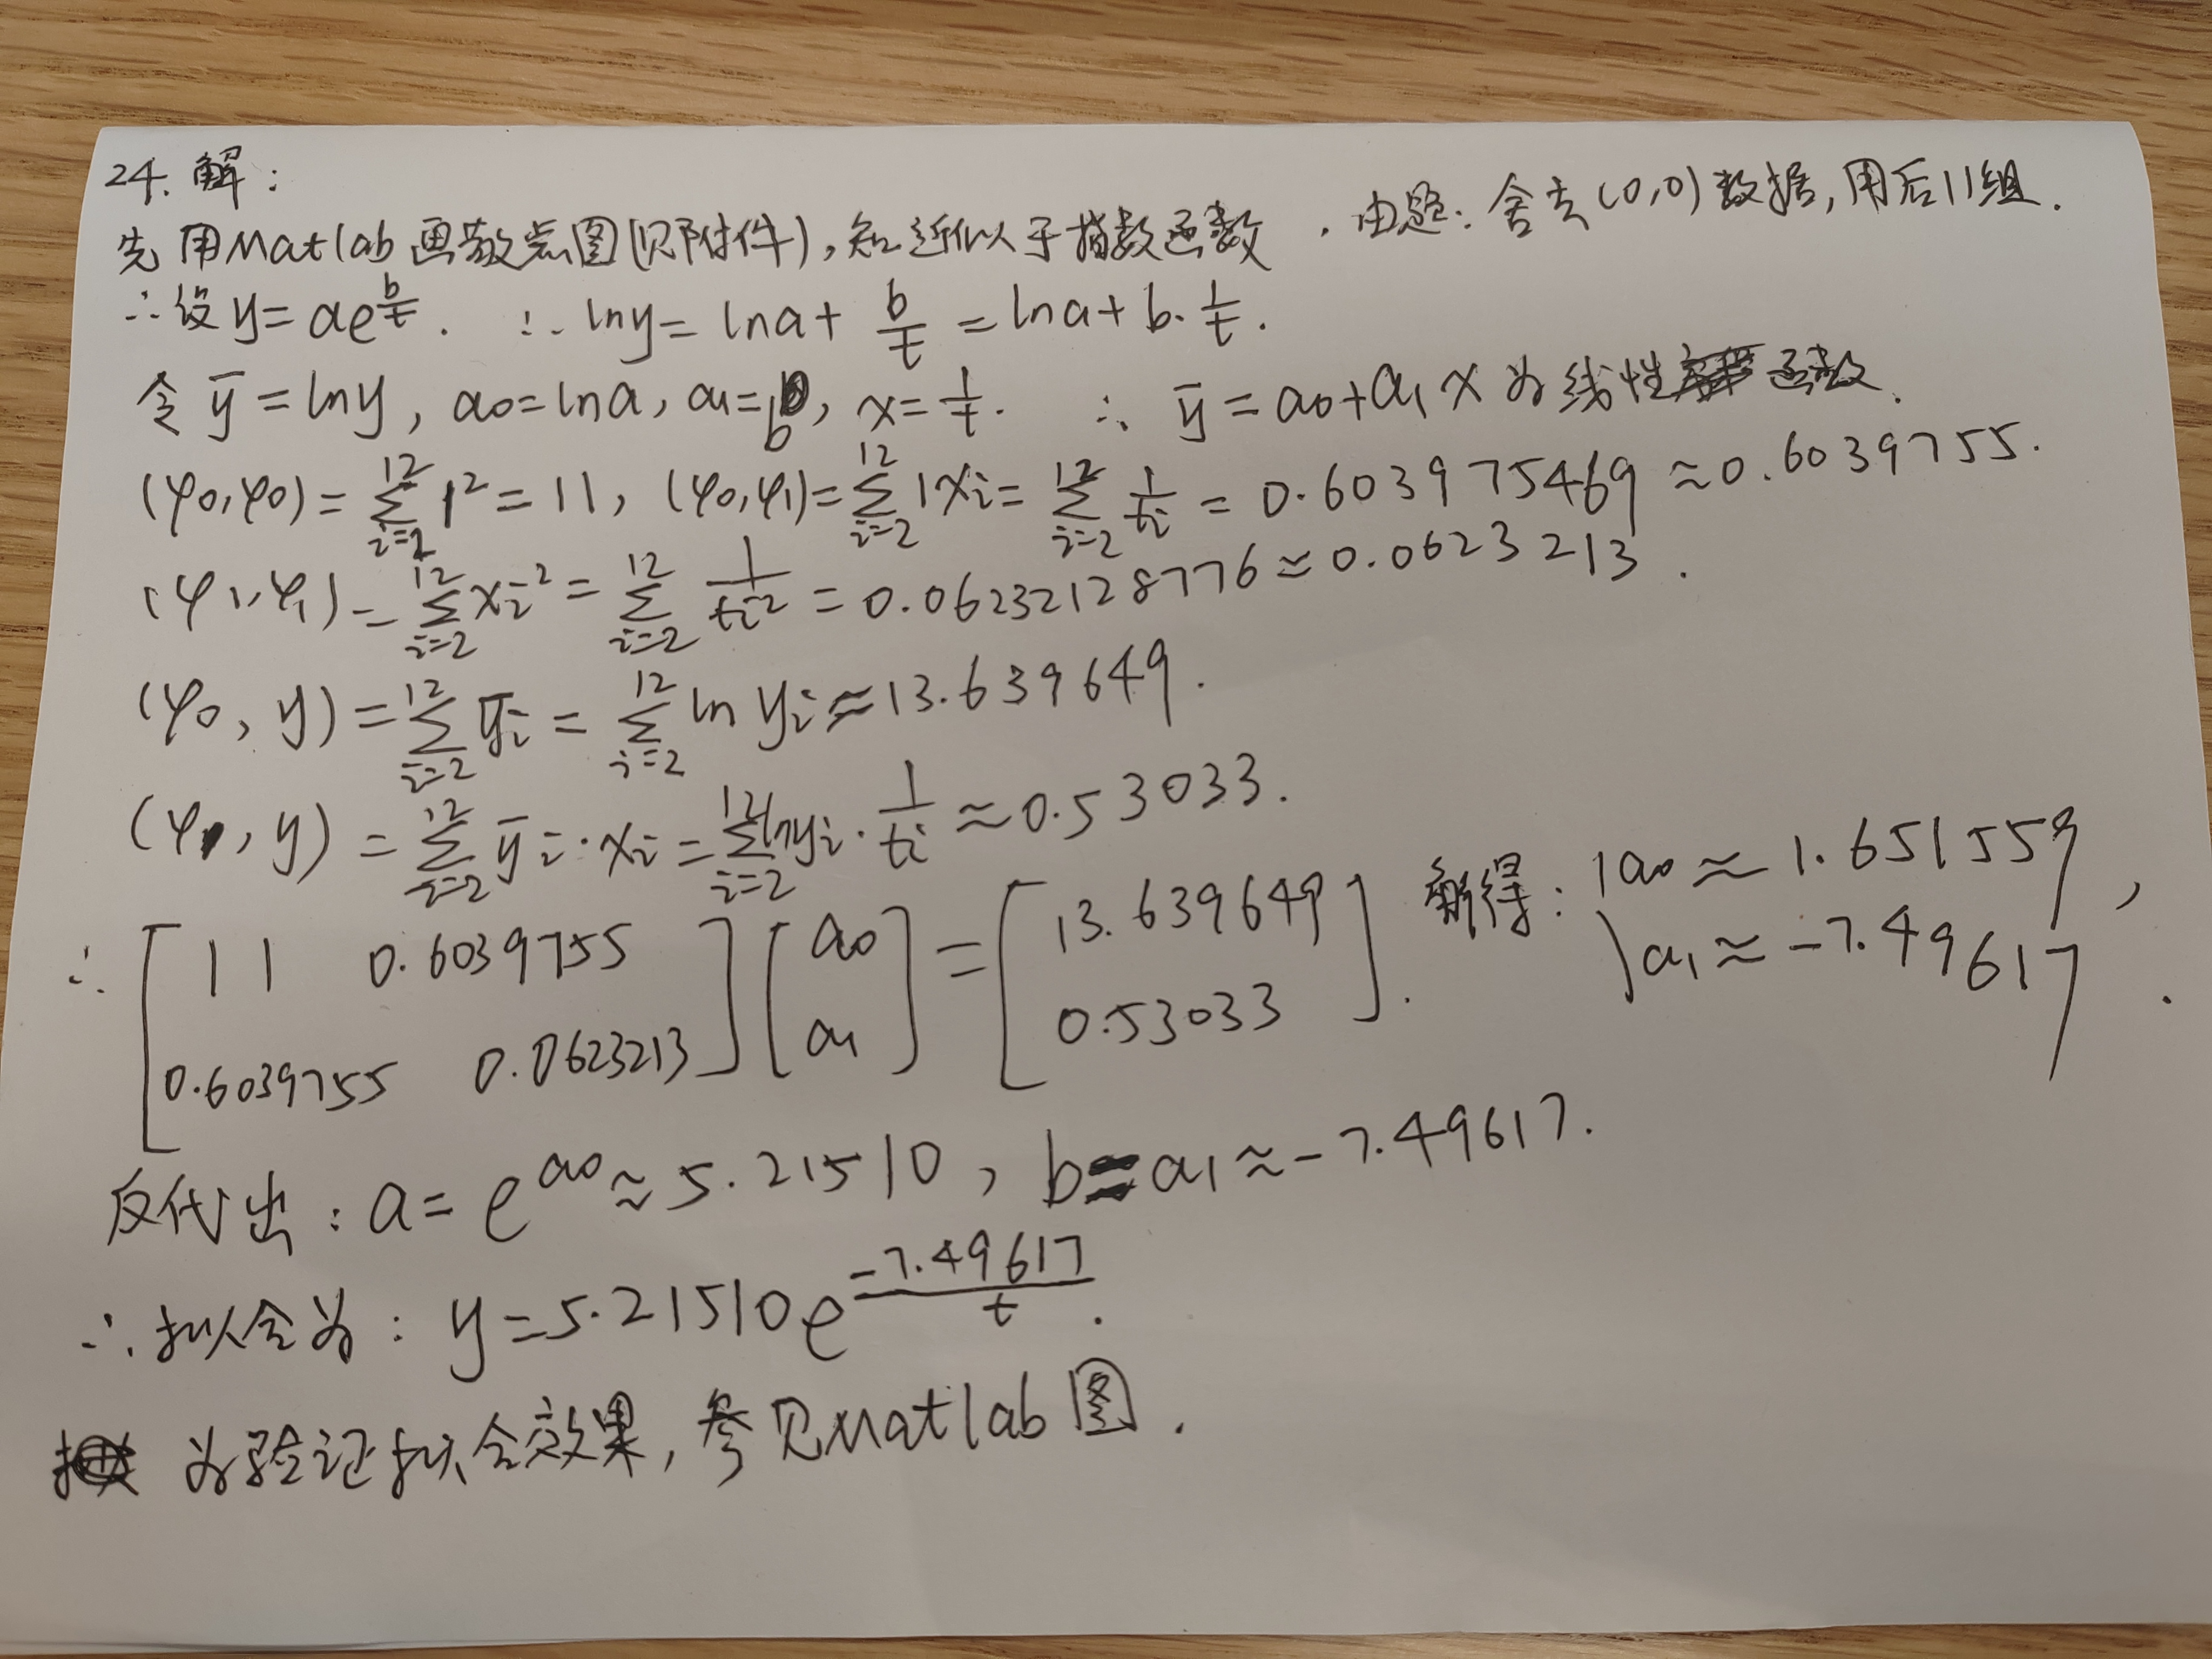 24. 解:
先用Matlab画散点图(见附件),知近似于指数函数. 由题:舍去(0,0)数据,用后11组.
∴设y=ae^{b/t}. ∴lny=lna+b/t=lna+b·1/t.
令ȳ=lny, a₀=lna, a₁=b, x=1/t. ∴ȳ=a₀+a₁x为线性函数.
(φ₀,φ₀)=∑_{i=2}^{12}1²=11, (φ₀,φ₁)=∑_{i=2}^{12}1xᵢ=∑_{i=2}^{12}1/tᵢ=0.603975469≈0.6039755.
(φ₁,φ₁)=∑_{i=2}^{12}xᵢ²=∑_{i=2}^{12}1/tᵢ²=0.06232128776≈0.0623213.
(φ₀,y)=∑_{i=2}^{12}ȳᵢ=∑_{i=2}^{12}ln yᵢ≈13.639649.
(φ₁,y)=∑_{i=2}^{12}ȳᵢ·xᵢ=∑_{i=2}^{12}lnyᵢ·1/tᵢ≈0.53033.
∴[11 0.6039755; 0.6039755 0.0623213][a₀; a₁]=[13.639649; 0.53033]. 解得:{a₀≈1.651559, a₁≈-7.49617.
反代出:a=e^{a₀}≈5.21510, b=a₁≈-7.49617.
∴拟合为:y=5.21510e^{-7.49617/t}.
为验证拟合效果,参见Matlab图.